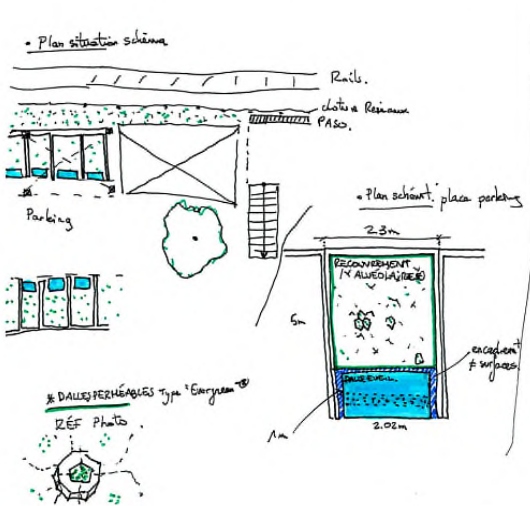 • Plan situation schéma
Rails.
clôture Réseaux
PASO.
Parking
• Plan schémt. place parking
2.3m
RECOUVREMENT
5m
encadremt
≠ surfaces
1m
2.02m
* DALLES PERMÉABLES Type "Evergreen" ®
RÉF Photo.